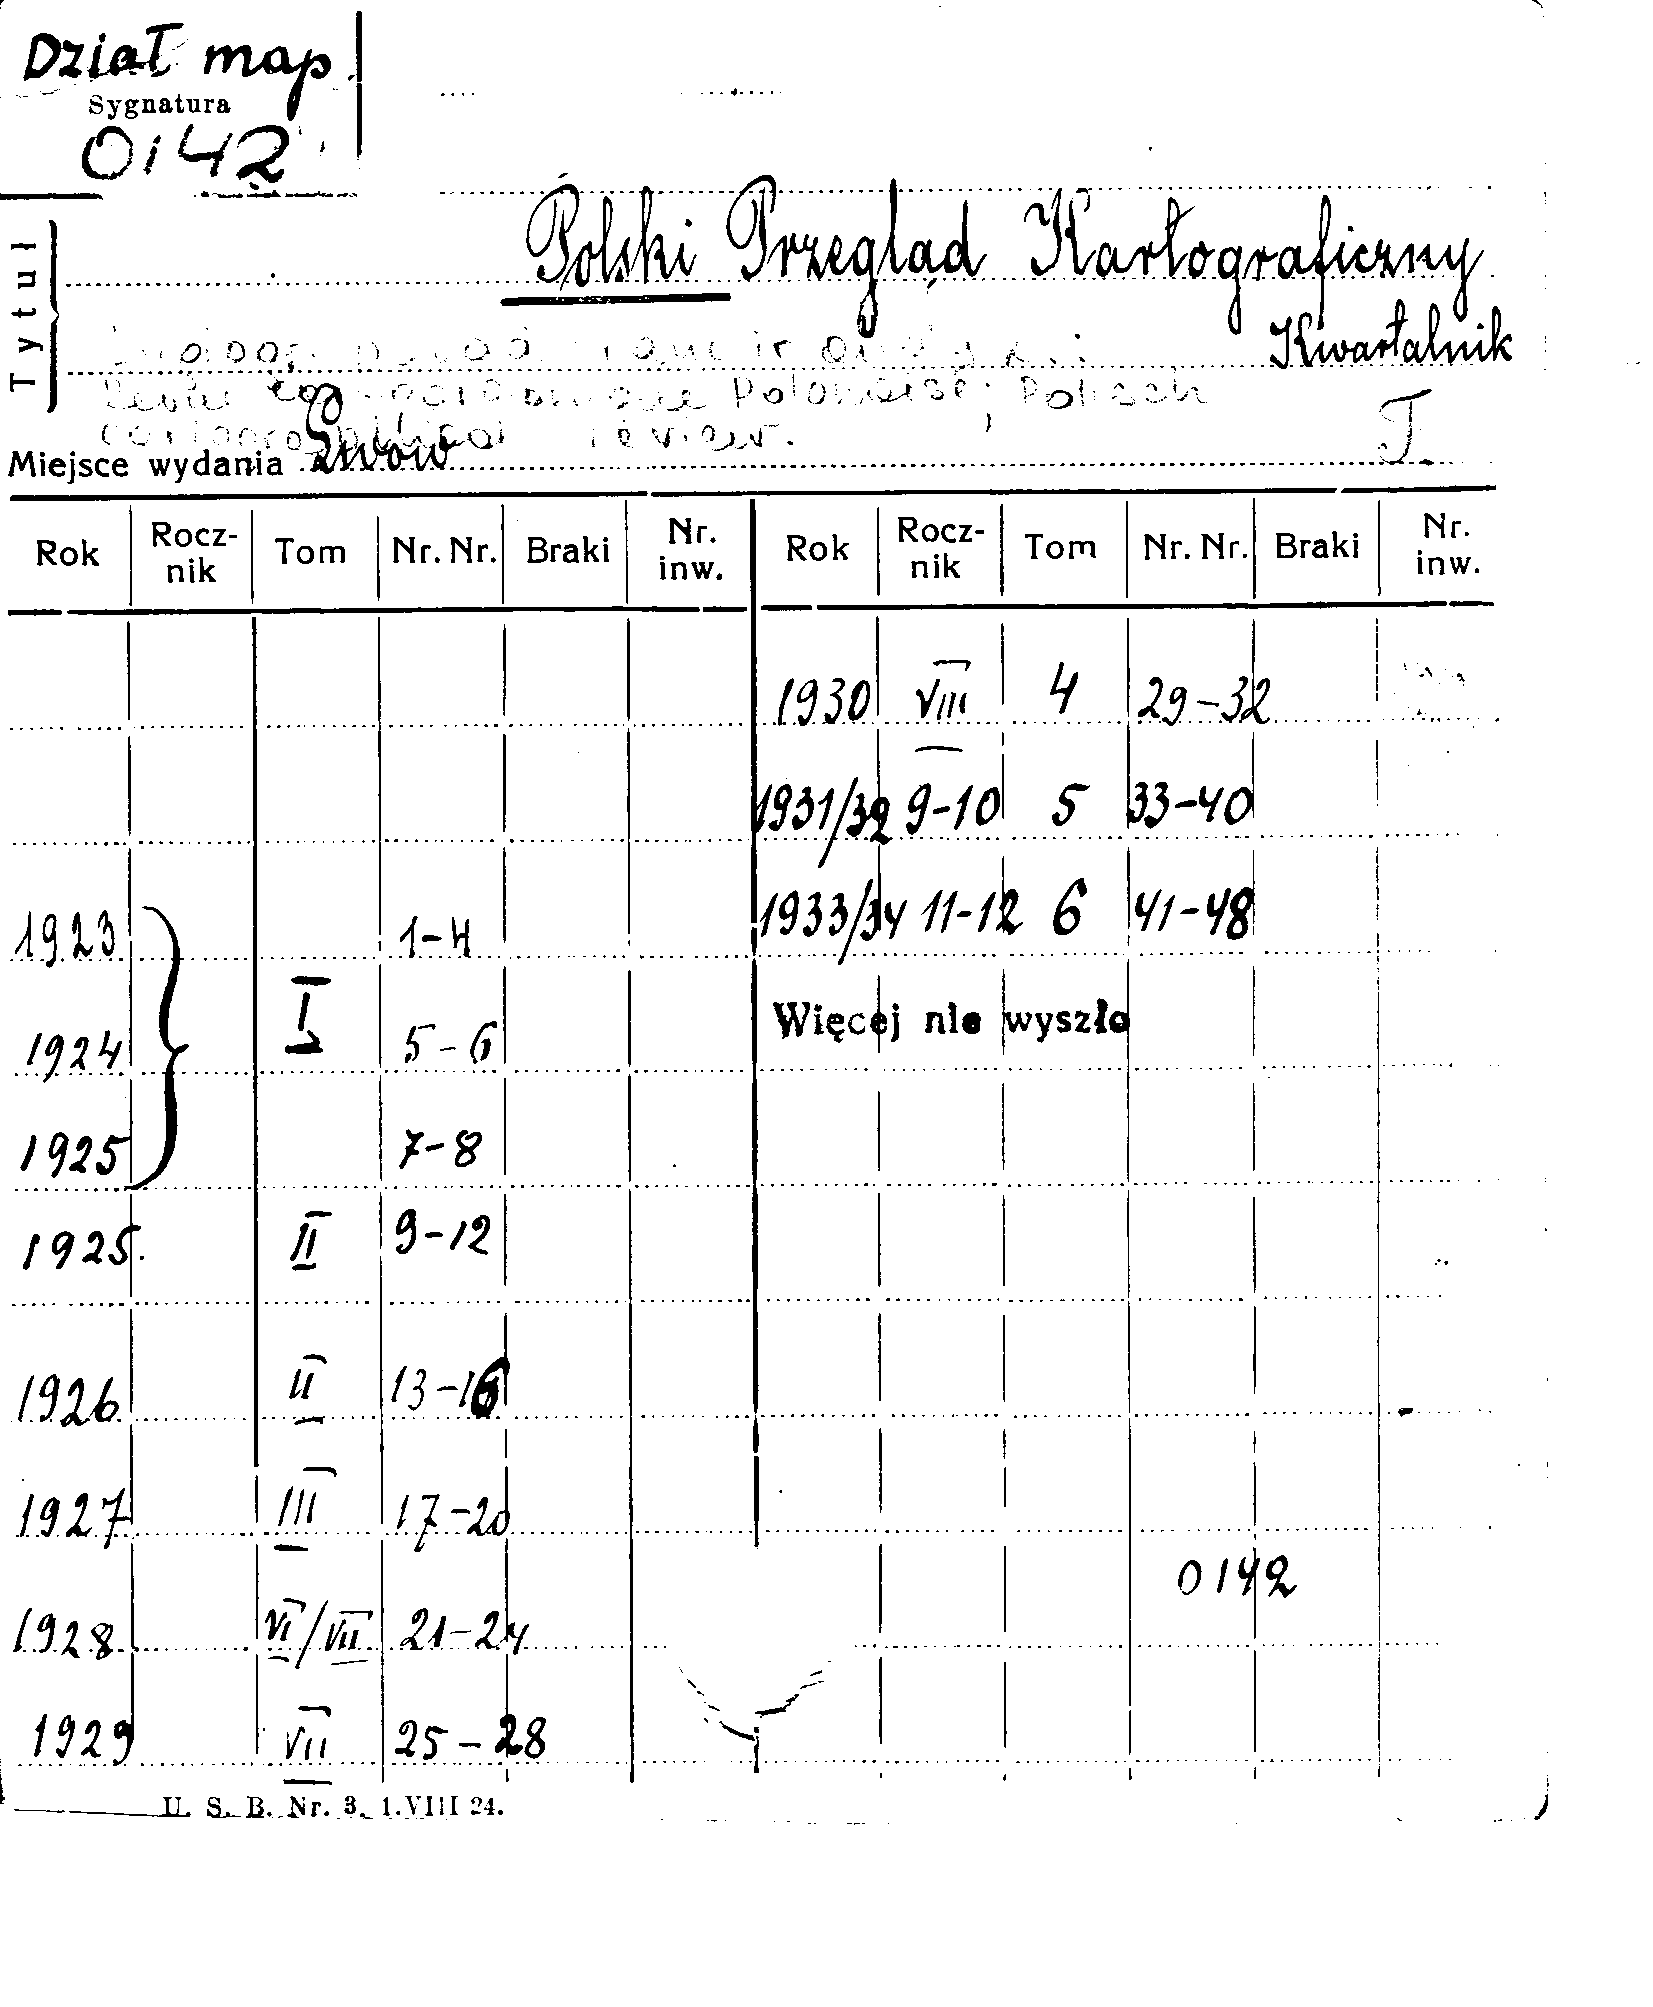 Dział map
Sygnatura
0142
Tytuł
Polski Przegląd Kartograficzny
Kwartalnik
Polonaise; Polisch
review.
T.
Miejsce wydania Lwów
Rok Rocz-nik Tom Nr. Nr. Braki Nr. inw. Rok Rocz-nik Tom Nr. Nr. Braki Nr. inw.
1930 VIII 4 29-32
1931/32 9-10 5 33-40
1933/34 11-12 6 41-48
Więcej nie wyszło
1923 1-4
1924 I 5-6
1925 7-8
1925. II 9-12
1926 II 13-16
1927 III 17-20
0142
1928 VI/VII 21-24
1929 VII 25-28
U. S. B. Nr. 3. 1.VIII 24.